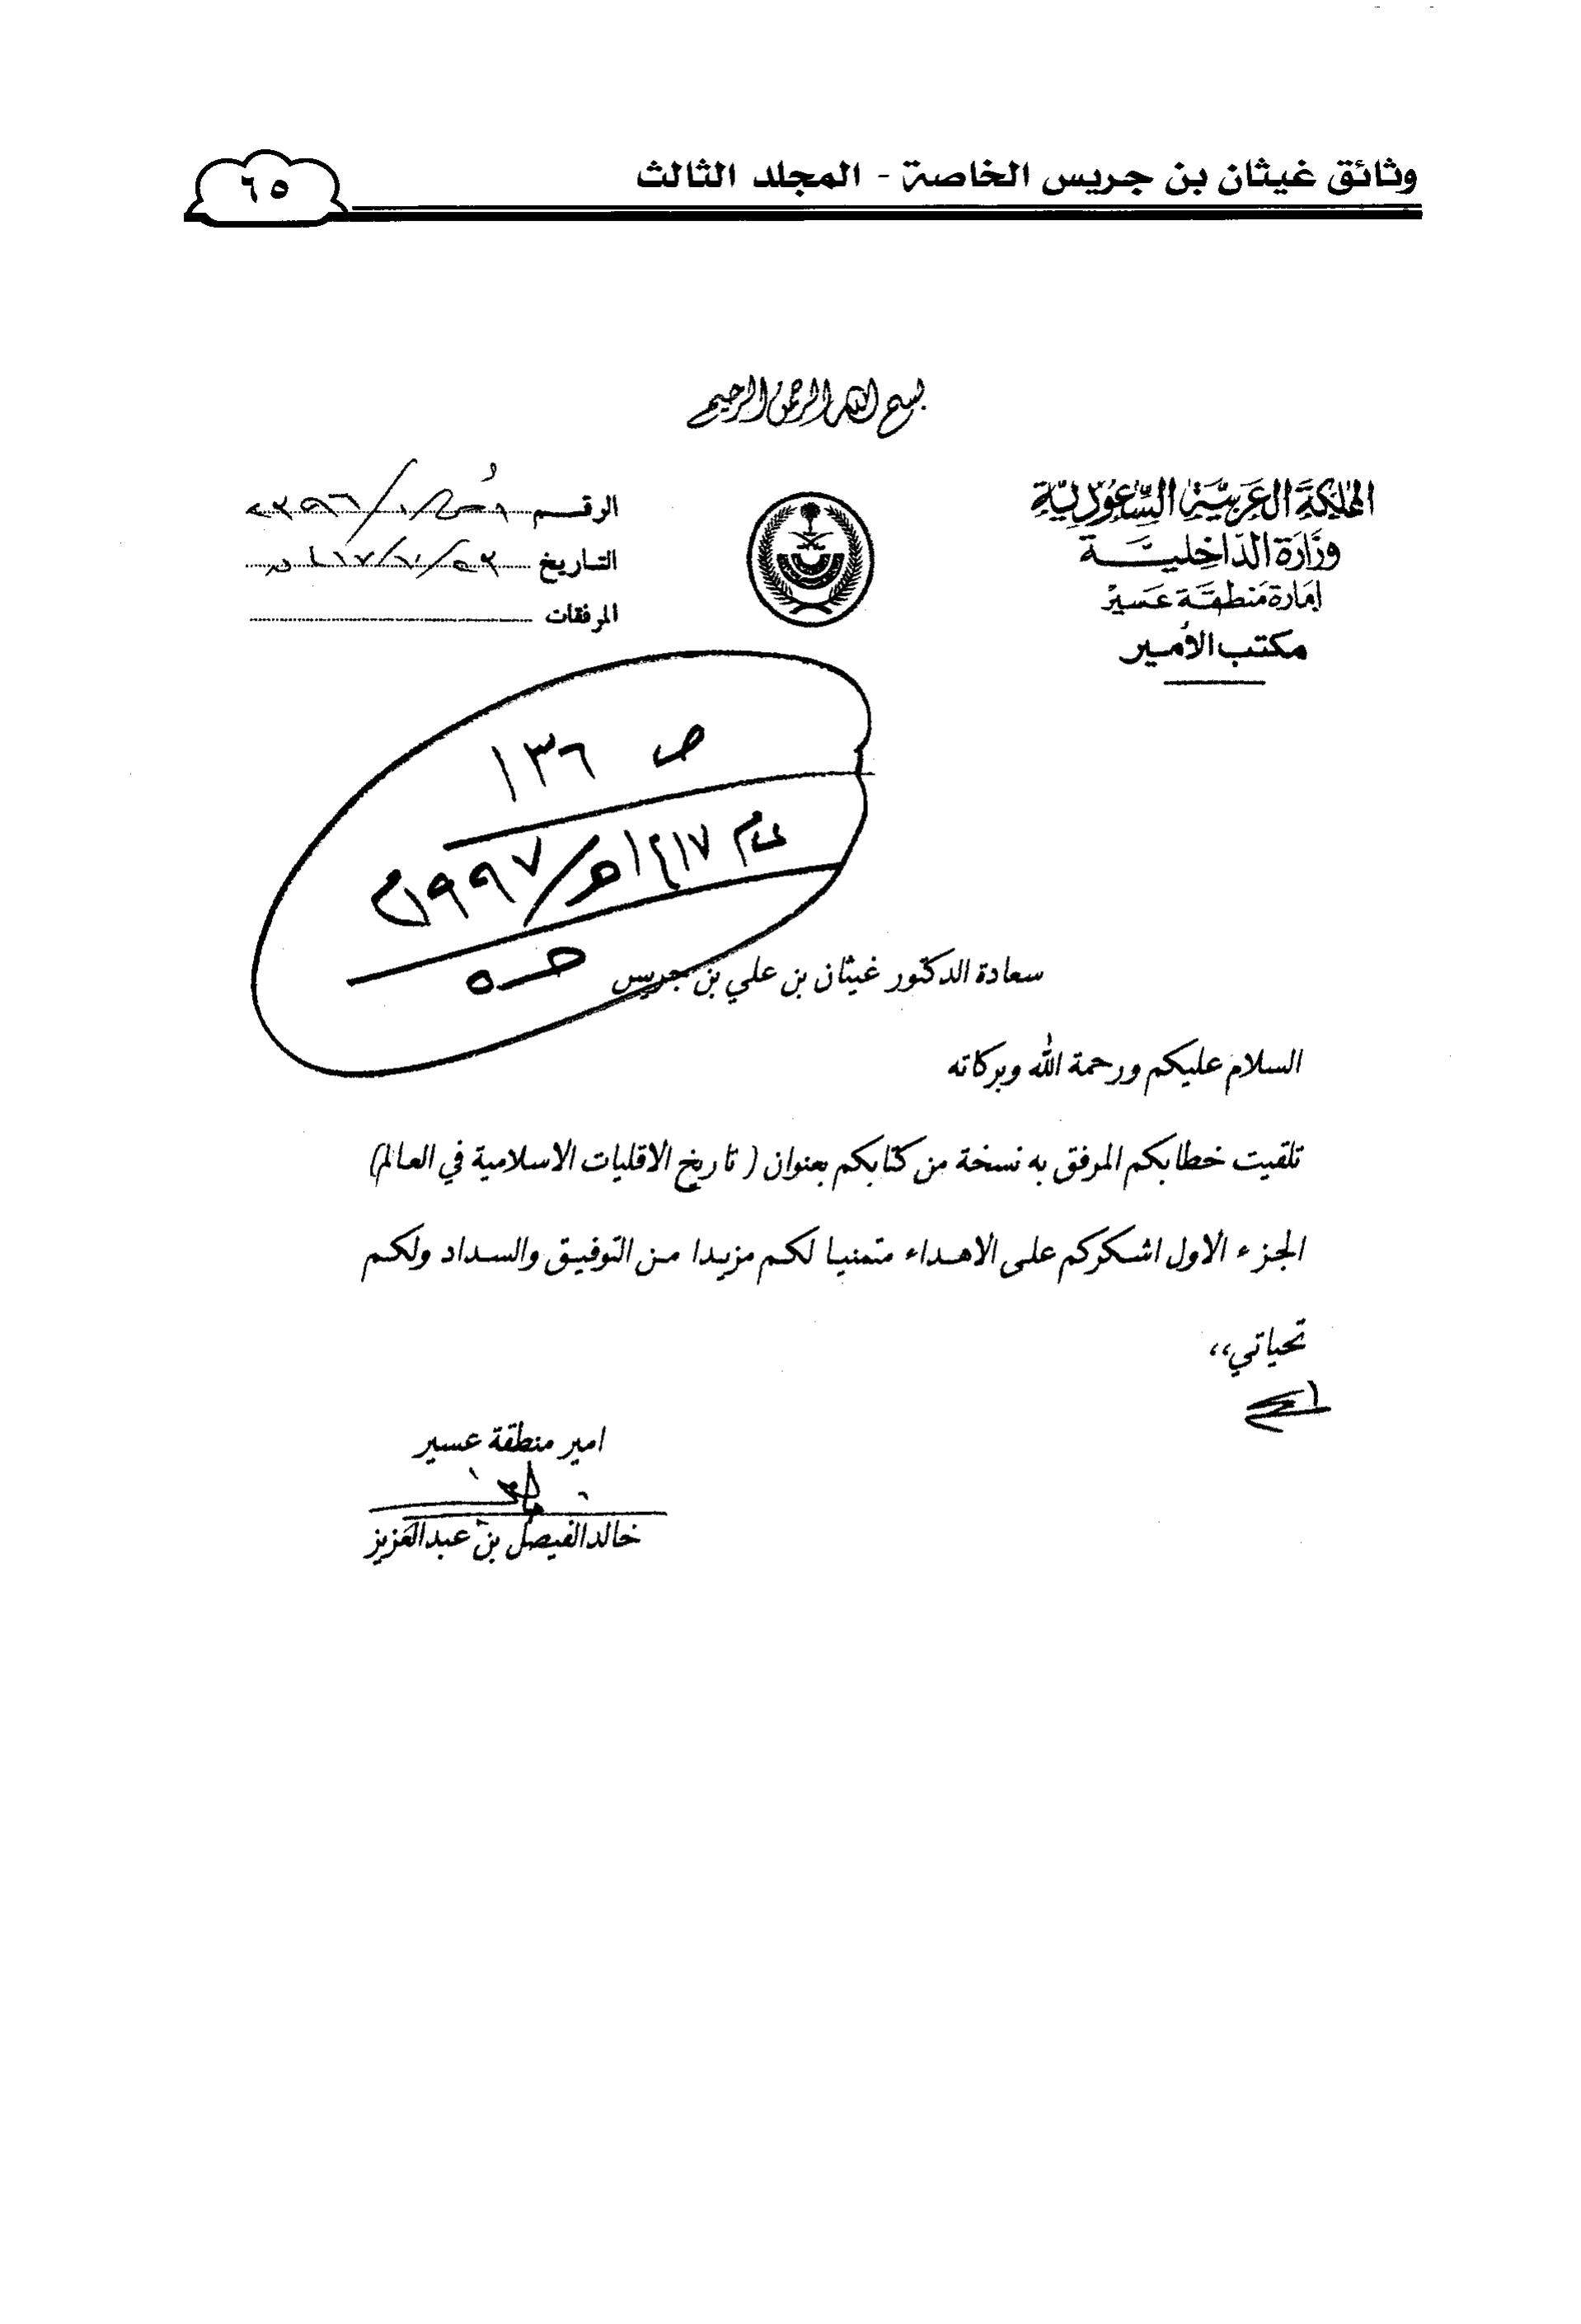 وثائق غيثان بن جريس الخاصة - المجلد الثالث
٦٥
بسم الله الرحمن الرحيم
المملكة العربية السعودية
وزارة الداخلية
إمارة منطقة عسير
مكتب الأمير
الرقم
التاريخ
المرفقات
ص ١٣٦
عام ١٤١٧هـ/١٩٩٧م
سعادة الدكتور غيثان بن علي بن جريس
السلام عليكم ورحمة الله وبركاته
تلقيت خطابكم المرفق به نسخة من كتابكم بعنوان ( تاريخ الاقليات الاسلامية في العالم)
الجزء الاول اشكركم على الاهداء متمنيا لكم مزيدا من التوفيق والسداد ولكم
تحياتي،،
امير منطقة عسير
خالد الفيصل بن عبدالعزيز